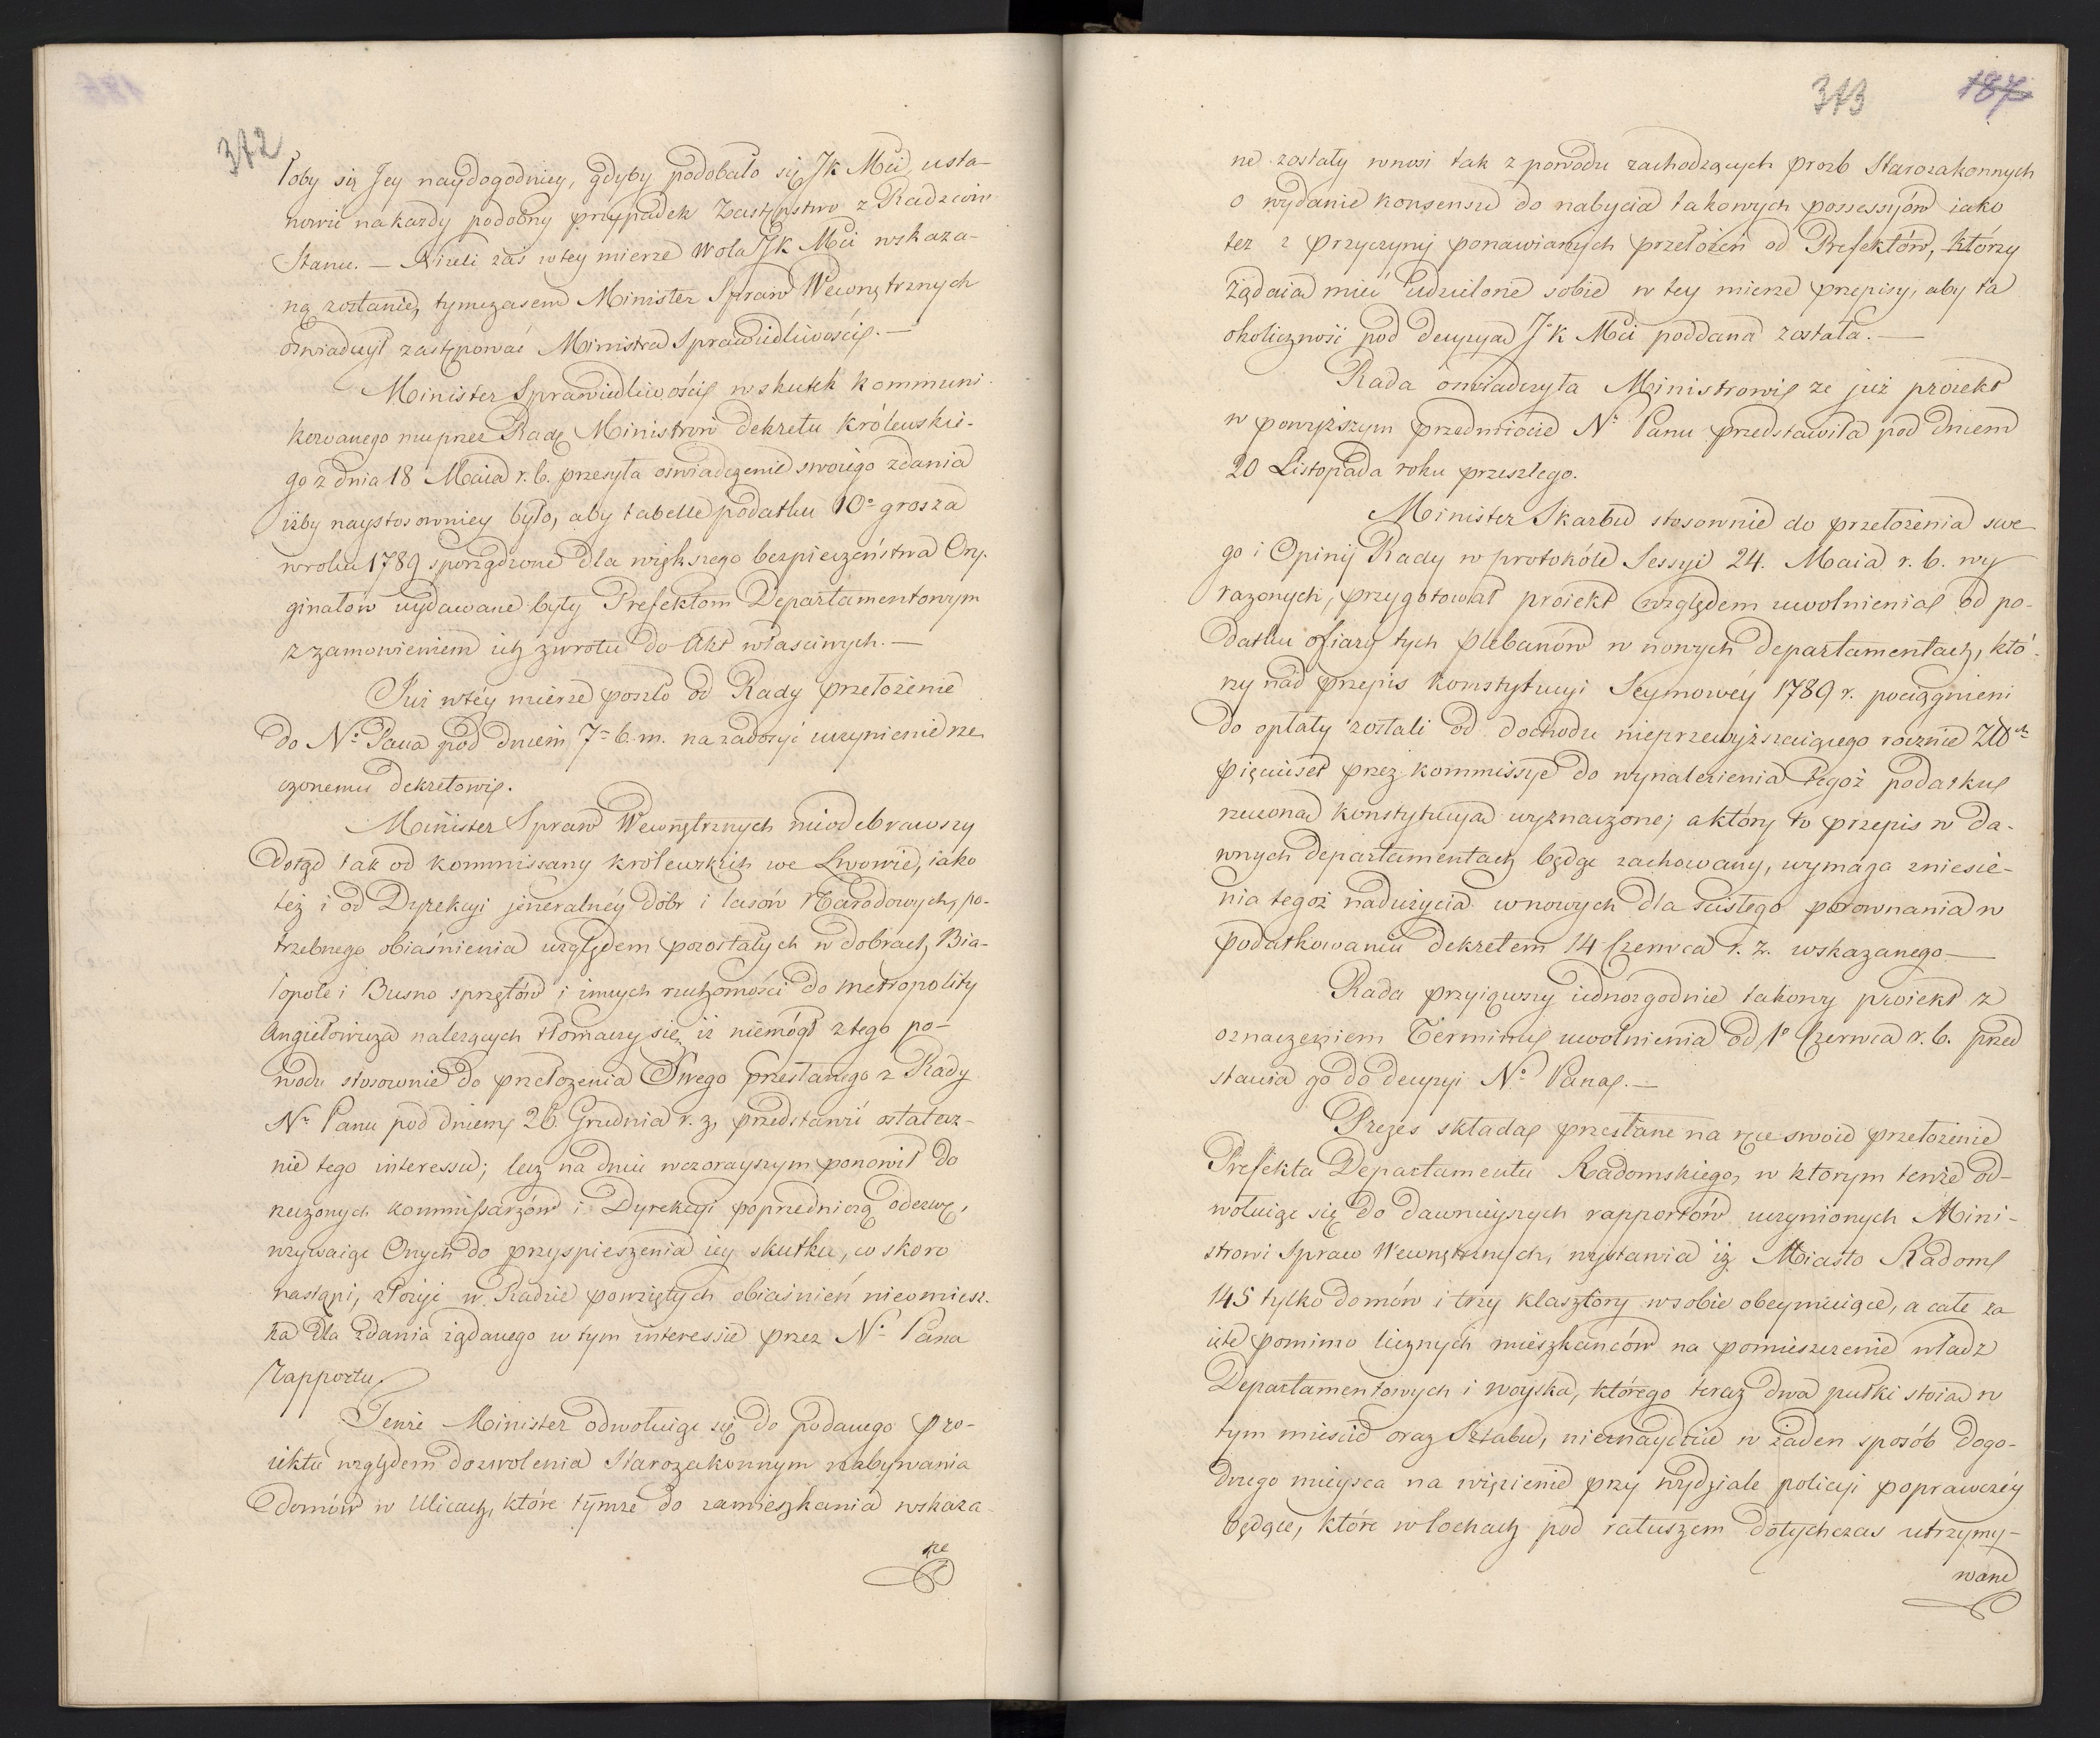 372
łoby się Jey naydogodniey, gdyby podobało się JK Mci, usta-
nowić na każdy podobny przypadek Zastępstwo z Radzców
Stanu. — Nizeli zaś w tey mierze Wola JK Mci wskaza-
ną zostanie, tymczasem Minister Spraw Wewnętrznych
oświadczył zastępować Ministra Sprawiedliwości. —
Minister Sprawiedliwości w skutek kommuni-
kowanego mu przez Radę Ministrów dekretu Królewskie-
go z dnia 18 Maia r. b. przesyła oświadczenie swoiego zdania
iżby naystosowniey było, aby tabelle podatku 10o grosza
w roku 1789 sporządzone dla większego bezpieczeństwa Ory-
ginałów wydawane były Prefektom Departamentowym
z zamowieniem ich zwrotu do Akt właściwych. —
Już w téy mierze poszło od Rady przełożenie
do No Pana pod dniem 7o b. m. na zadosyć uczynienie rze
czonemu dekretowi.
Minister Spraw Wewnętrznych nieodebrawszy
dotąd tak od kommissarzy królewskich we Lwowie, iako
też i od Dyrekcyi jeneralnéy dóbr i lasów Narodowych, po-
trzebnego obiaśnienia względem pozostałych w dobrach Bia-
łopole i Busno sprzętów i innych ruchomości do metropolity
Angiełowicza należących tłomaczy się, iż niemógł z tego po-
wodu stosownie do przełożenia Swego przesłanego z Rady
No Panu pod dniem 26. Grudnia r. z. przedstawić ostatecz-
nie tego interessu; lecz na dniu wczorayszym ponowił do
rzeczonych kommissarzów i Dyrekcyi poprzedniczą odezwę,
wzywaiąc Onych do przyspieszenia iey skutku, co skoro
nastąpi, złoży w Radzie powziętych obiaśnień nieomiesz-
ka dla zdania żądanego w tym interessie przez No Pana
Rapportu.
Tenże Minister odwołuiąc się do podanego pro-
iektu względem dozwolenia Starozakonnym nabywania
domów w Ulicach, które tymże do zamieszkania wskaza-
ne
313
187
ne zostały wnosi tak z powodu zachodzących prozb Starozakonnych
o wydanie konsensu do nabycia takowych possessyów iako
też z przyczyny ponawianych przełożeń od Prefektów, którzy
żądaią mieć udzielone sobie w tey mierze przepisy, aby ta
okoliczność pod decyzyą JK Mci poddana została. —
Rada oświadczyła Ministrowi że już proiekt
w powyższym przedmiocie No Panu przedstawiła pod dniem
20 Listopada roku przeszłego.
Minister Skarbu stosownie do przełożenia swe
go i Opinij Rady w protokóle Sessyi 24. Maia r. b. wy
rażonych, przygotował proiekt względem uwolnienia od po-
datku ofiary tych plebanów w nowych departamentach, któ-
rzy nad przepis konstytucyi Seymowéy 1789 r. pociągnieni
do opłaty zostali od dochodu nieprzewyższaiącego rocznie Złłch
pięciuset przez kommissye do wynalezienia tegoż podatku
rzeczoną konstytucyą wyznaczone; a który to przepis w da-
wnych departamentach będąc zachowany, wymaga zniesie-
nia tegoż nadużycia w nowych dla ścisłego porownania w
podatkowaniu dekretem 14 Czerwca r. z. wskazanego —
Rada przyiąwszy iednozgodnie takowy proiekt z
oznaczeniem Terminu uwolnienia od 1o Czerwca r. b. przed
stawia go do decyzyi No Pana. —
Prezes składa przesłane na ręce swoie przełożenie
Prefekta Departamentu Radomskiego, w ktorym tenże od-
wołuiąc się do dawnieyszych rapportów uczynionych Mini-
strowi Spraw Wewnętrznych, wystawia iż Miasto Radom
145 tylko domów i trzy klasztory w sobie obeymuiące, a całe za
ięte pomimo licznych mieszkańców na pomieszczenie władz
Departamentowych i woyska, którego teraz dwa pułki stoią w
tym mieście oraz Sztabu, nieznaydzie w żaden sposób dogo-
dnego mieysca na więzienie przy wydziale policyi poprawczéy
będące, które w lochach pod ratuszem dotychczas utrzymy-
wane